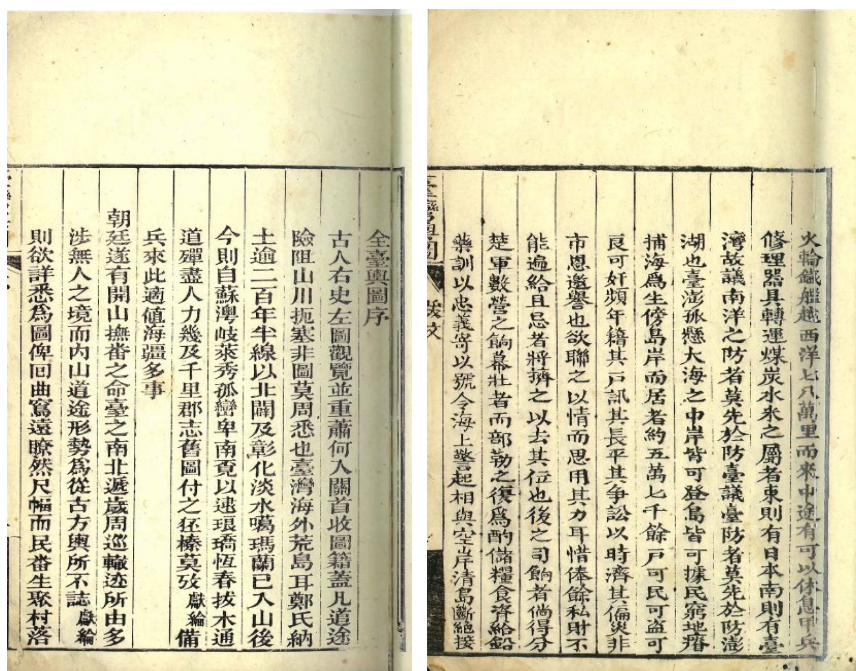 火輪鐵艦越西洋七八萬里而來中途有可以休息甲兵
修理器具轉運煤炭水米之屬者東則有日本南則有臺
灣故議南洋之防者莫先於防臺議臺防者莫先於防澎
湖也臺澎孤懸大海之中岸皆可登島皆可據民窮地瘠
捕海爲生傍島岸而居者約五萬七千餘戶可民可盜可
良可奸頻年籍其戶訊其長平其爭訟以時濟其偏災非
市恩邀譽也欲聯之以情而思用其力耳惜俸餘私財不
能遍給且忌者將擠之以去其位也後之司餉者倘得分
楚軍數營之餉募壯者而部勒之復爲酌儲糧食齊給鉛
藥訓以忠義寄以號令海上警起相與空岸清島斷絕接
臺灣輿圖 跋文
全臺輿圖序
古人右史左圖觀覽並重蕭何入關首收圖籍蓋凡道途
險阻山川扼塞非圖莫周悉也臺灣海外荒島耳鄭氏納
土逾二百年半線以北闢及彰化淡水噶瑪蘭已入山後
今則自蘇澳岐萊秀孤巒卑南覓以迄琅璚恆春拔木通
道殫盡人力幾及千里郡志舊圖付之狉榛莫攷獻綸備
兵來此適值海疆多事
朝廷遂有開山撫番之命臺之南北遞歲周巡轍迹所由多
涉無人之境而內山道途形勢爲從古方輿所不誌獻綸
則欲詳悉爲圖俾回曲寫遠瞭然尺幅而民番生聚村落